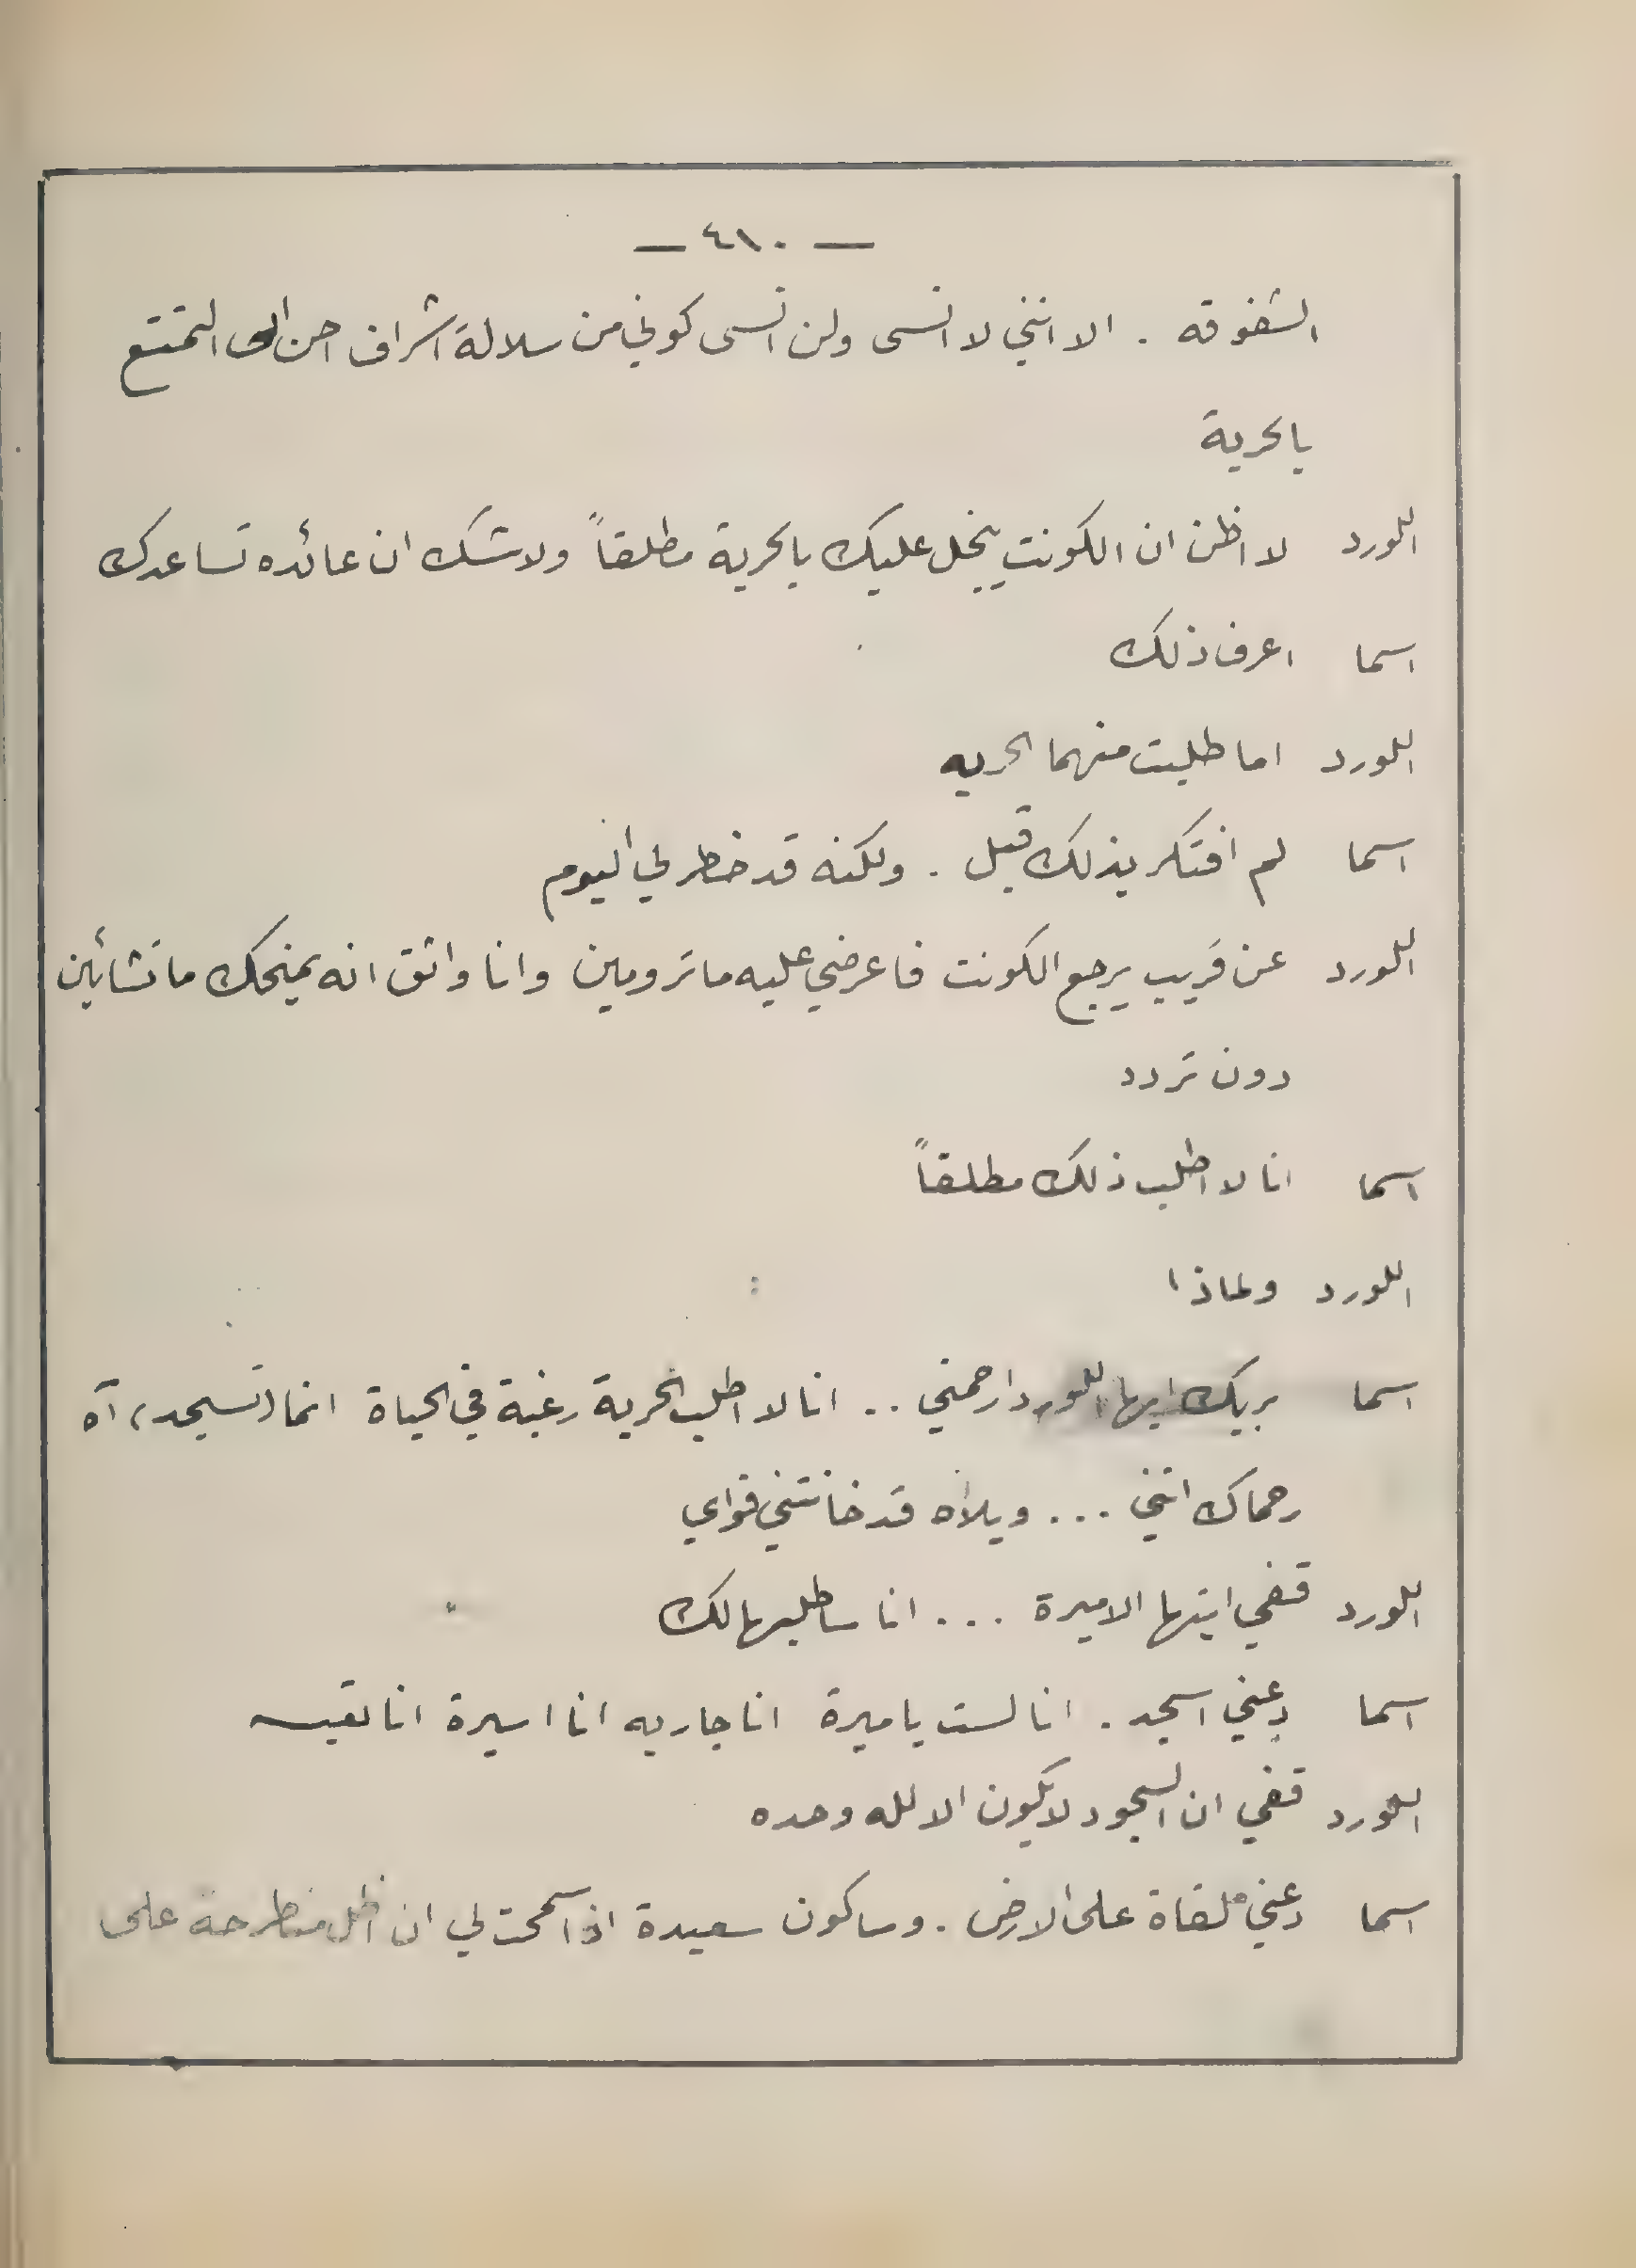 — ٤١٠ —
الشفوقه . الا انني لا انسى ولن انسى كوني من سلالة اشراف احن الى التمتع
بالحرية
اللورد لا اظن ان الكونت يبخل عليك بالحرية مطلقاً ولا شك ان عائده تساعدك
اسما اعرف ذلك
اللورد اما طلبت منهما الحريه
اسما لم افتكر بذلك قبل . ولكنه قد خطر لي اليوم
اللورد عن قريب يرجع الكونت فاعرضي عليه ما ترومين وانا واثق انه يمنحك ما تشأين
دون تردد
اسما انا لا اطلب ذلك مطلقاً
اللورد ولماذا
اسما بربك ايها اللورد ارحمني .. انا لا اطلب الحرية رغبة في الحياة انما (تسجد) آه
رحماك انني ... ويلاه قد خانتني قواي
اللورد قفي ايتها الاميرة ... انا ساطلبها لك
اسما دعني اسجد . انا لست باميرة انا جاريه انا اسيرة انا تعيسه
اللورد قفي ان السجود لا يكون الا لله وحده
اسما دعني ملقاة على الارض . وساكون سعيدة اذا سمحت لي ان اظل منطرحة على